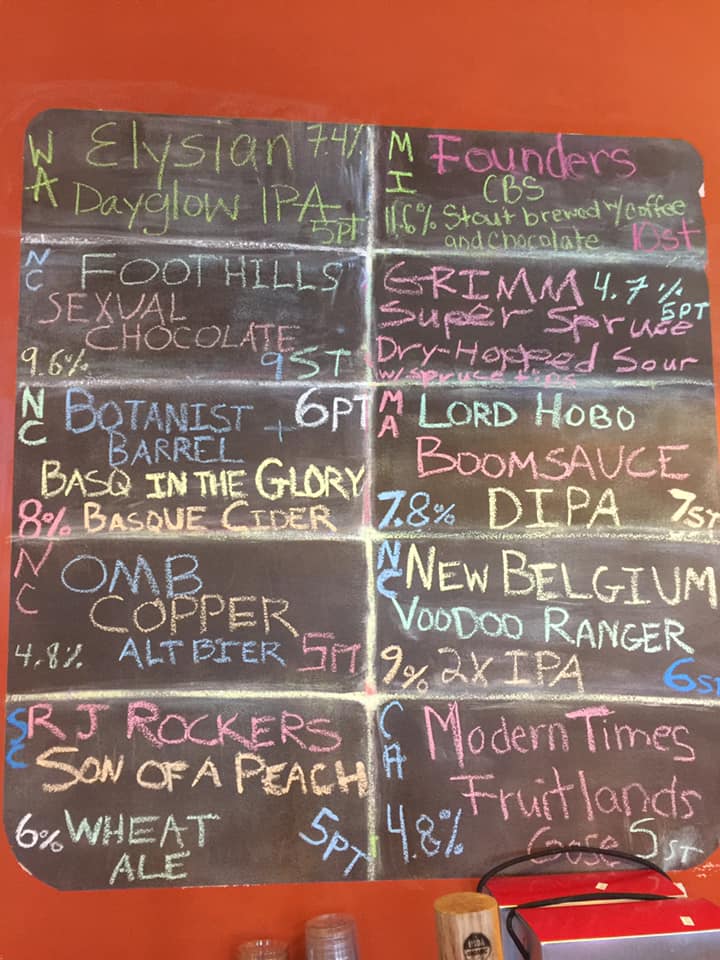 WA Elysian 7.4%
Dayglow IPA
5PT
MI Founders
CBS
11.6% Stout brewed w/ coffee
and chocolate 10ST
NC FOOTHILLS
SEXUAL
CHOCOLATE
9.6% 9ST
GRIMM 4.7%
5PT
Super Spruce
Dry-Hopped Sour
w/ spruce tips
NC BOTANIST + 6PT
BARREL
BASQ IN THE GLORY
8% BASQUE CIDER
MA LORD HOBO
BOOMSAUCE
7.8% DIPA 7ST
NC OMB
COPPER
4.8% ALT BIER 5PT
NC NEW BELGIUM
VOODOO RANGER
9% 2X IPA 6ST
SC RJ ROCKERS
SON OF A PEACH
6% WHEAT 5PT
ALE
CA Modern Times
Fruitlands
4.8% Gose 5ST